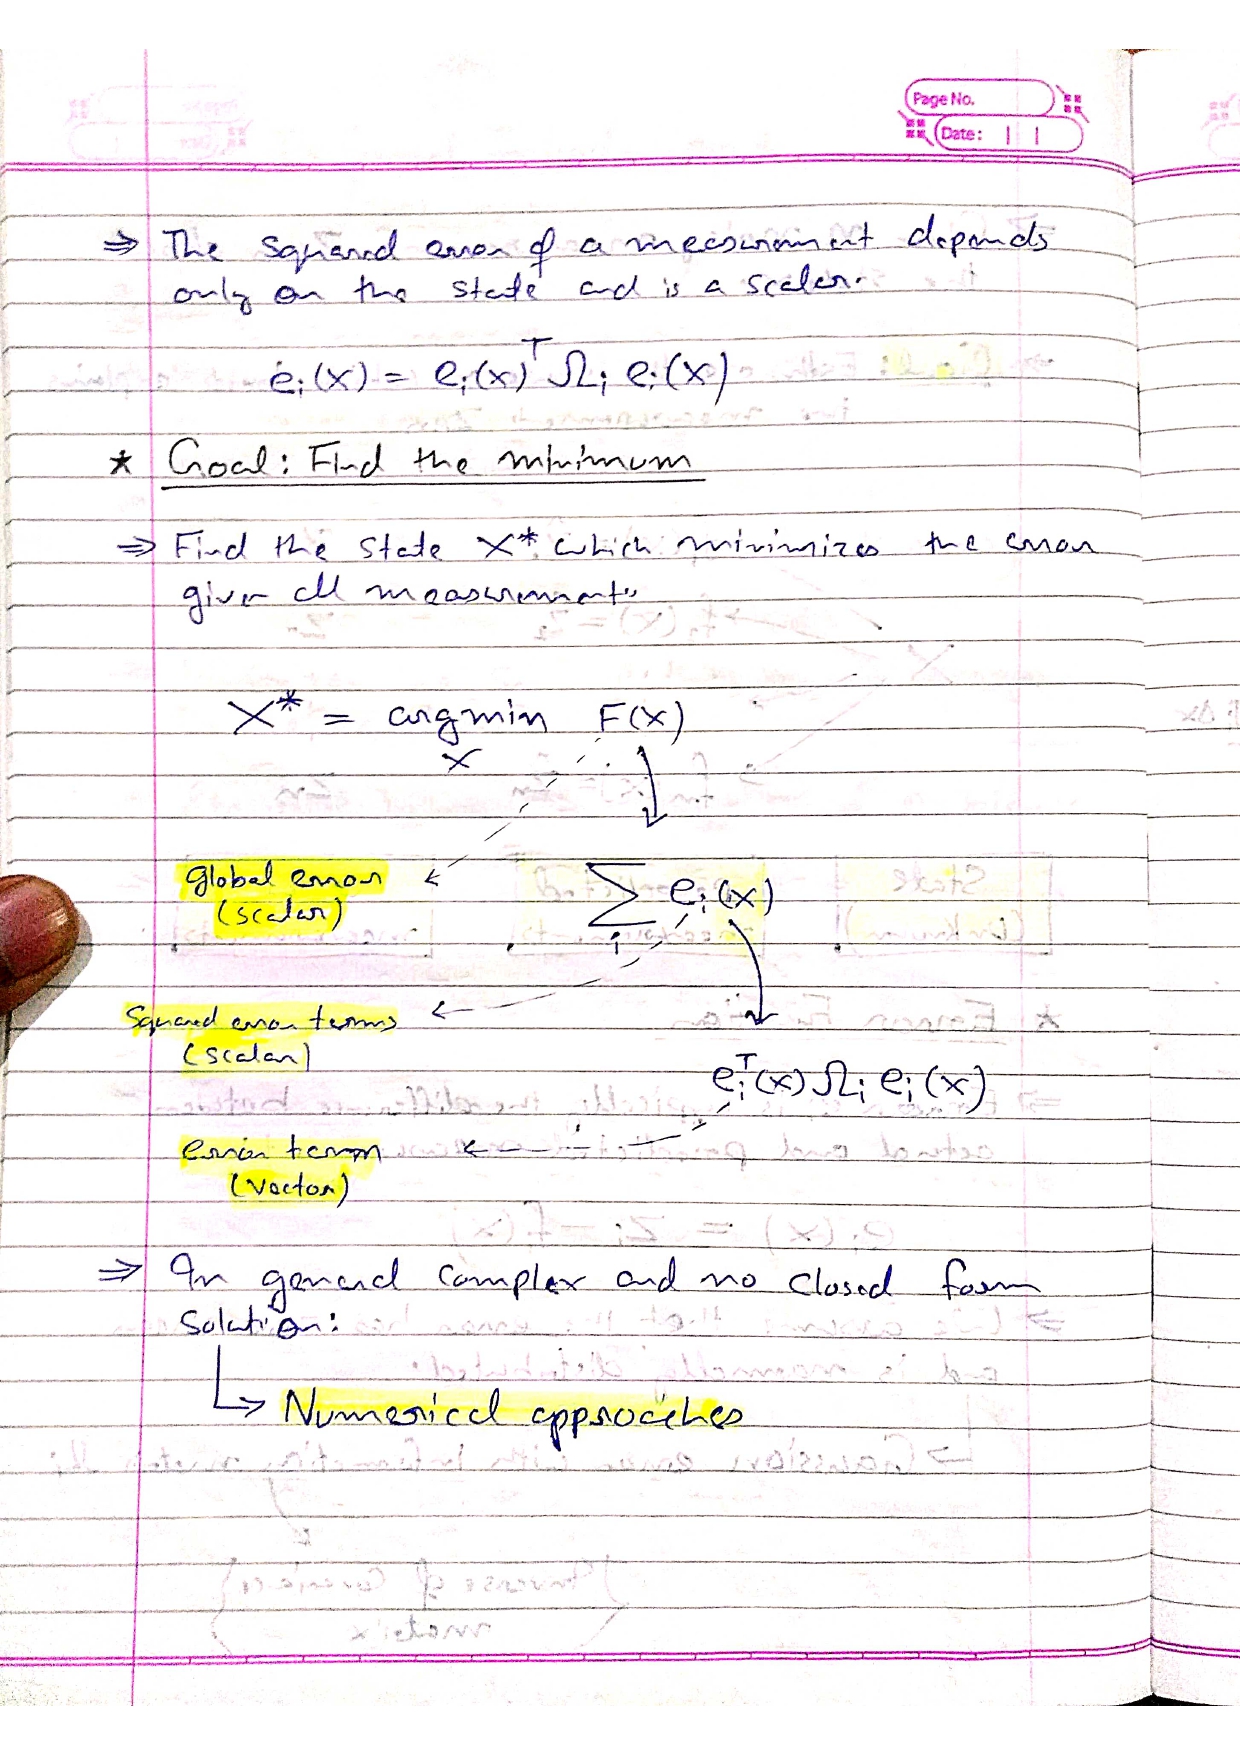 Page No.
Date:
⇒ The squared error of a measurement depends
only on the state and is a scalar.
eᵢ(x) = eᵢ(x)ᵀ Ωᵢ eᵢ(x)
* Goal: Find the minimum
⇒ Find the state X* which minimizes the error
given all measurements
X* = argmin F(x)
x
global error
(scalar)
∑ eᵢ(x)
i
Squared error terms
(scalar)
eᵢᵀ(x) Ωᵢ eᵢ(x)
error term
(vector)
⇒ In general complex and no closed form
solution:
↳ Numerical approaches